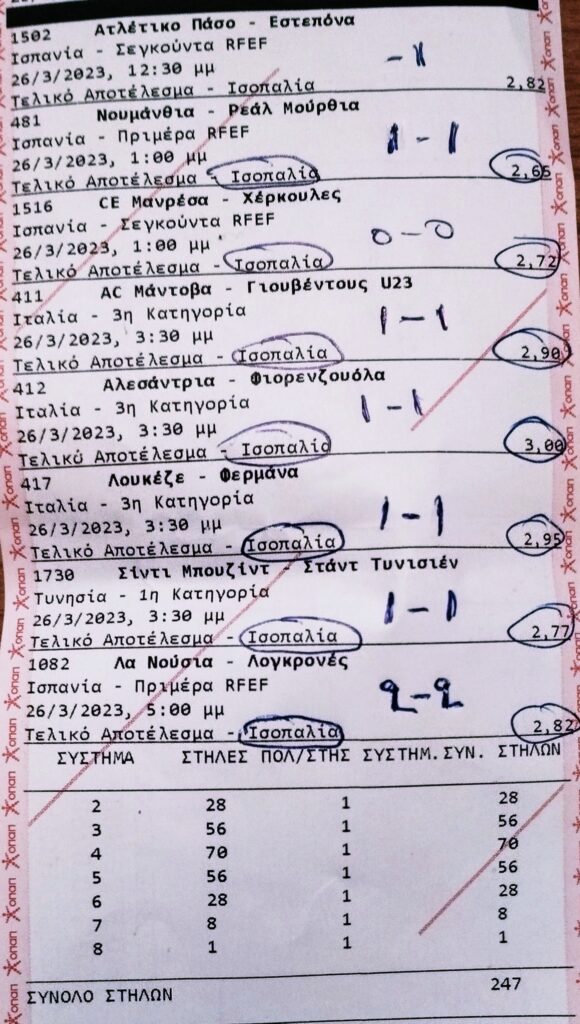 1502 Ατλέτικο Πάσο - Εστεπόνα
Ισπανία - Σεγκούντα RFEF
26/3/2023, 12:30 μμ
- x
Τελικό Αποτέλεσμα - Ισοπαλία 2,82
481 Νουμάνθια - Ρεάλ Μούρθια
Ισπανία - Πριμέρα RFEF
26/3/2023, 1:00 μμ
1 - 1
Τελικό Αποτέλεσμα - Ισοπαλία 2,65
1516 CE Μανρέσα - Χέρκουλες
Ισπανία - Σεγκούντα RFEF
26/3/2023, 1:00 μμ
0 - 0
Τελικό Αποτέλεσμα - Ισοπαλία 2,72
411 AC Μάντοβα - Γιουβέντους U23
Ιταλία - 3η Κατηγορία
26/3/2023, 3:30 μμ
1 - 1
Τελικό Αποτέλεσμα - Ισοπαλία 2,90
412 Αλεσάντρια - Φιορενζουόλα
Ιταλία - 3η Κατηγορία
26/3/2023, 3:30 μμ
1 - 1
Τελικό Αποτέλεσμα - Ισοπαλία 3,00
417 Λουκέζε - Φερμάνα
Ιταλία - 3η Κατηγορία
26/3/2023, 3:30 μμ
1 - 1
Τελικό Αποτέλεσμα - Ισοπαλία 2,95
1730 Σίντι Μπουζίντ - Στάντ Τυνισιέν
Τυνησία - 1η Κατηγορία
26/3/2023, 3:30 μμ
1 - 1
Τελικό Αποτέλεσμα - Ισοπαλία 2,77
1082 Λα Νούσια - Λογκρονές
Ισπανία - Πριμέρα RFEF
26/3/2023, 5:00 μμ
2 - 2
Τελικό Αποτέλεσμα - Ισοπαλία 2,82
ΣΥΣΤΗΜΑ ΣΤΗΛΕΣ ΠΟΛ/ΣΤΗΣ ΣΥΣΤΗΜ. ΣΥΝ. ΣΤΗΛΩΝ
2 28 1 28
3 56 1 56
4 70 1 70
5 56 1 56
6 28 1 28
7 8 1 8
8 1 1 1
ΣΥΝΟΛΟ ΣΤΗΛΩΝ 247